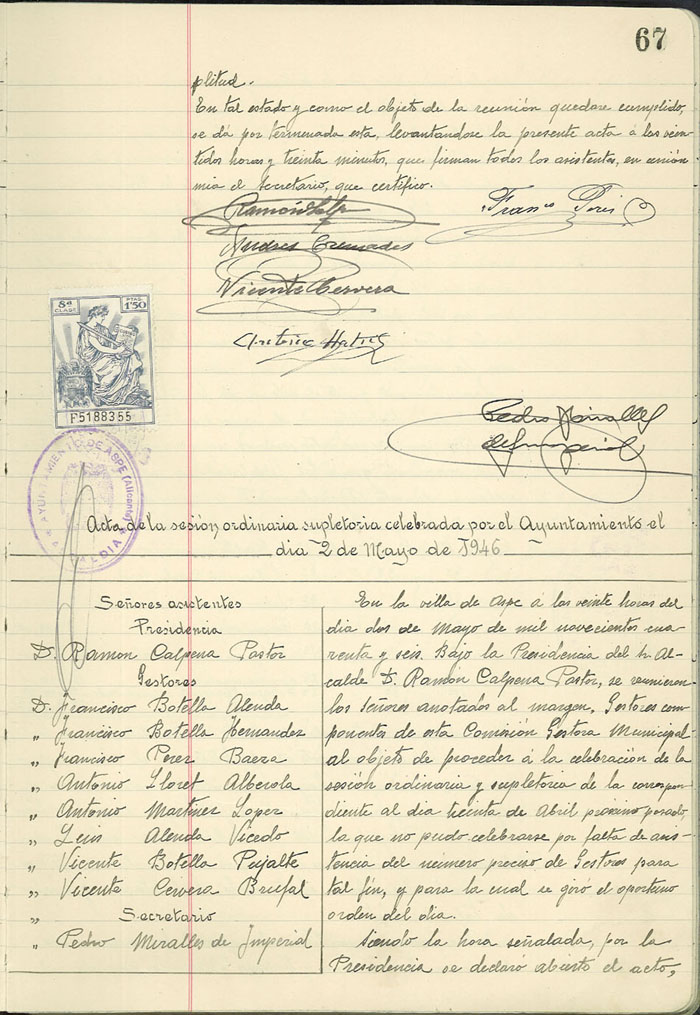 67
plitud.
En tal estado y como el objeto de la reunión quedase cumplido,
se da por terminada esta, levantandose la presente acta á las vein-
tidos horas y treinta minutos, que firman todos los asistentes, en unión
mia el Secretario, que certifico.
Franco Peris
Andres Cremades
Vicente Cervera
8ª CLASE
PTAS. 1'50
F5188355
Pedro Miralles
de Imperial
AYUNTAMIENTO DE ASPE (Alicante)
ALCALDIA
Acta de la sesión ordinaria supletoria celebrada por el Ayuntamiento el
dia 2 de Mayo de 1946
Señores asistentes
Presidencia
D. Ramon Calpena Pastor
Gestores
D. Francisco Botella Alenda
„ Francisco Botella Hernandez
„ Francisco Perez Baeza
„ Antonio Lloret Alberola
„ Antonio Martinez Lopez
„ Luis Alenda Vicedo
„ Vicente Botella Pujalte
„ Vicente Cervera Brufal
„ Secretario
„ Pedro Miralles de Imperial
En la villa de Aspe á las veinte horas del
dia dos de Mayo de mil novecientos cua-
renta y seis. Bajo la Presidencia del Sr. Al-
calde D. Ramón Calpena Pastor, se reunieron
los Señores anotados al margen, Gestores com-
ponentes de esta Comisión Gestora Municipal
al objeto de proceder á la celebración de la
sesión ordinaria y supletoria de la correspon-
diente al dia treinta de Abril proximo pasado,
la que no pudo celebrarse por falta de asis-
tencia del número preciso de Gestores para
tal fin, y para la cual se giró el oportuno
orden del dia.
Siendo la hora señalada, por la
Presidencia se declaró abierto el acto,